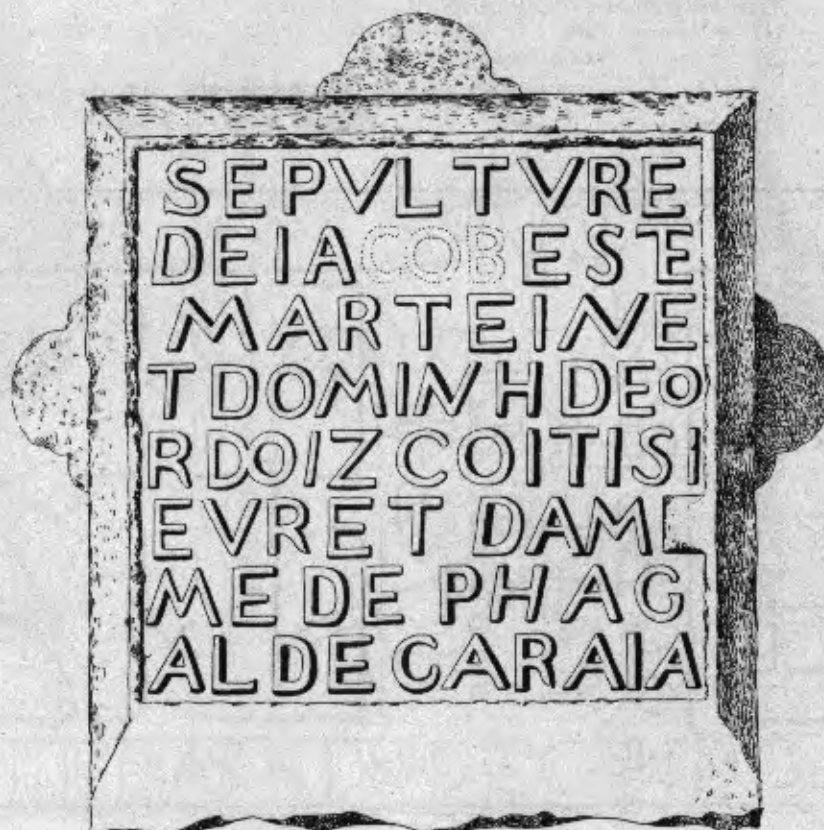 SEPVLTVRE
DEIACOBESTE
MARTEINE
TDOMINHDEO
RDOIZCOITISI
EVRET DAM
MEDE PHAG
ALDEGARAIA